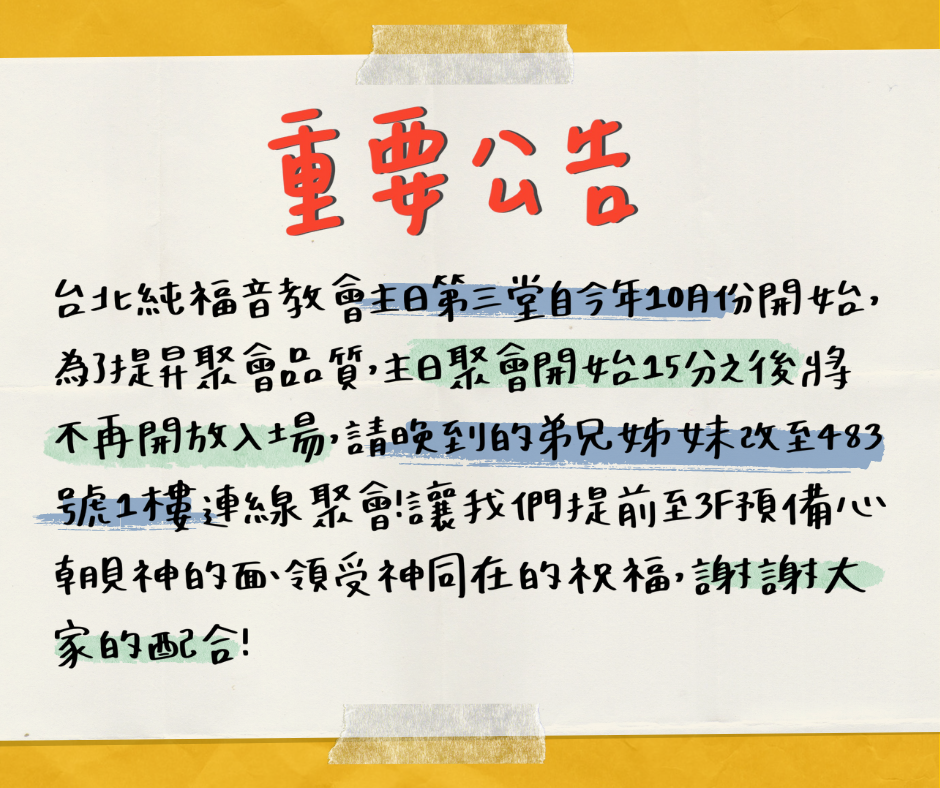 重要公告
台北純福音教會主日第三堂自今年10月份開始,
為了提昇聚會品質,主日聚會開始15分之後將
不再開放入場,請晚到的弟兄姊妹改至483
號1樓連線聚會!讓我們提前至3F預備心
朝見神的面、領受神同在的祝福,謝謝大
家的配合!